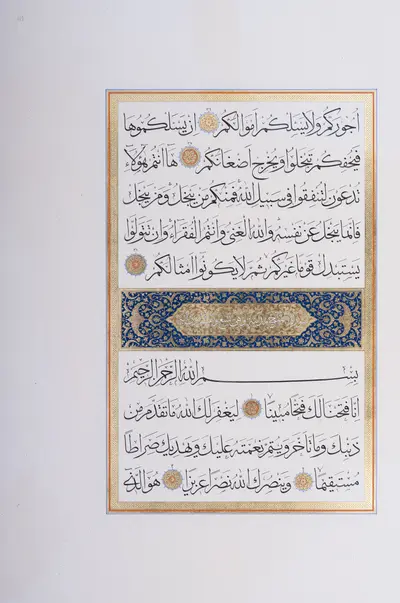 اُجُورَكُمْ وَلَا يَسْـَٔلْكُمْ اَمْوَالَكُمْ اِنْ يَسْـَٔلْكُمُوهَا
فَيُحْفِكُمْ تَبْخَلُوا وَيُخْرِجْ اَضْغَانَكُمْ هَا اَنْتُمْ هٰؤُلَاءِ
تُدْعَوْنَ لِتُنْفِقُوا فِي سَبِيلِ اللّٰهِ فَمِنْكُمْ مَنْ يَبْخَلُ وَمَنْ يَبْخَلْ
فَاِنَّمَا يَبْخَلُ عَنْ نَفْسِهِ وَاللّٰهُ الْغَنِيُّ وَاَنْتُمُ الْفُقَرَاءُ وَاِنْ تَتَوَلَّوْا
يَسْتَبْدِلْ قَوْمًا غَيْرَكُمْ ثُمَّ لَا يَكُونُوا اَمْثَالَكُمْ
بِسْمِ اللّٰهِ الرَّحْمٰنِ الرَّحِيمِ
اِنَّا فَتَحْنَا لَكَ فَتْحًا مُبِينًا لِيَغْفِرَ لَكَ اللّٰهُ مَا تَقَدَّمَ مِنْ
ذَنْبِكَ وَمَا تَاَخَّرَ وَيُتِمَّ نِعْمَتَهُ عَلَيْكَ وَيَهْدِيَكَ صِرَاطًا
مُسْتَقِيمًا وَيَنْصُرَكَ اللّٰهُ نَصْرًا عَزِيزًا هُوَ الَّذِي